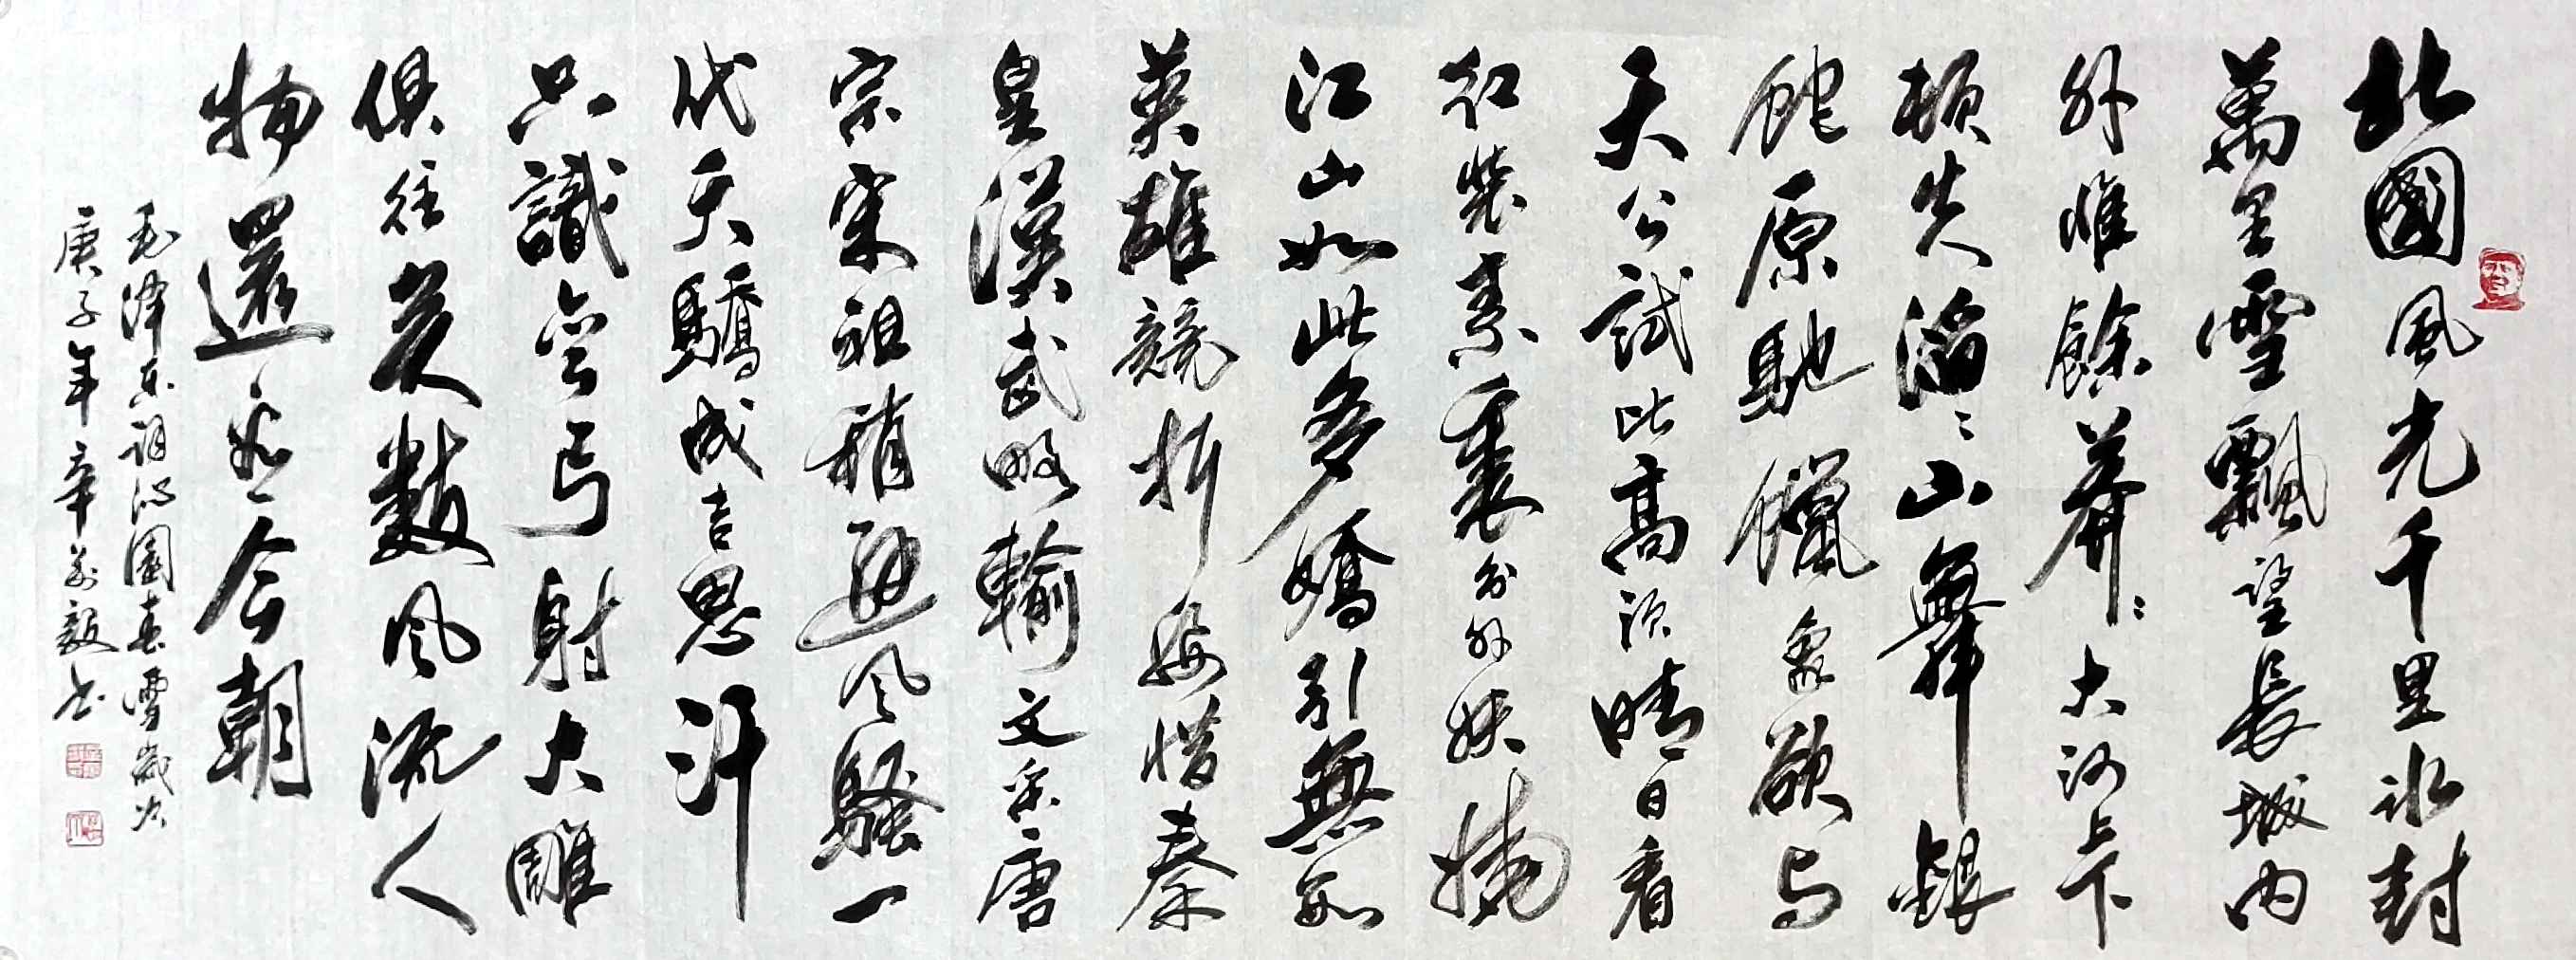 北國風光千里冰封
萬里雪飄望長城内
外惟餘莽〻大河上下
頓失滔〻山舞銀
蛇原馳蠟象欲与
天公試比高须晴日看
红裝素裹分外妖娆
江山如此多嬌引無數
英雄競折腰惜秦
皇漢武略輸文采唐
宗宋祖稍遜风騷一
代天驕成吉思汗
只識彎弓射大雕
俱往矣數风流人
物還看今朝
毛泽东词沁園春雪歲次
庚子年毅书